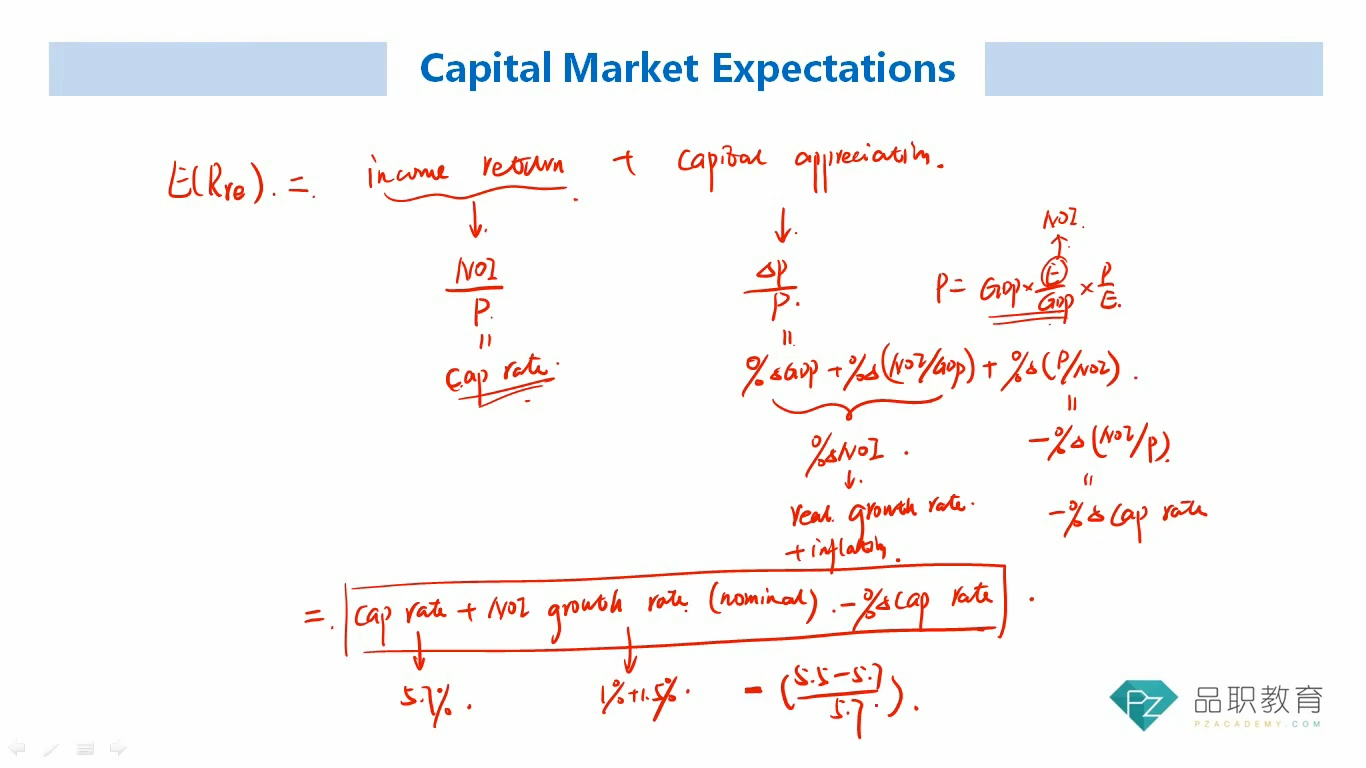 Capital Market Expectations
E(Rre). = income return + capital appreciation.
NOI
NOI/P. ΔP/P. P = GDP × E/GDP × P/E.
= =
cap rate. %ΔGDP + %Δ(NOI/GDP) + %Δ(P/NOI).
=
%ΔNOI. -%Δ(NOI/P).
=
real growth rate. -%Δ cap rate
+ inflation.
= cap rate + NOI growth rate (nominal). - %Δ cap rate.
5.7%. 1%+1.5%. - (5.5-5.7/5.7).
品职教育
PZ
PZACADEMY.COM